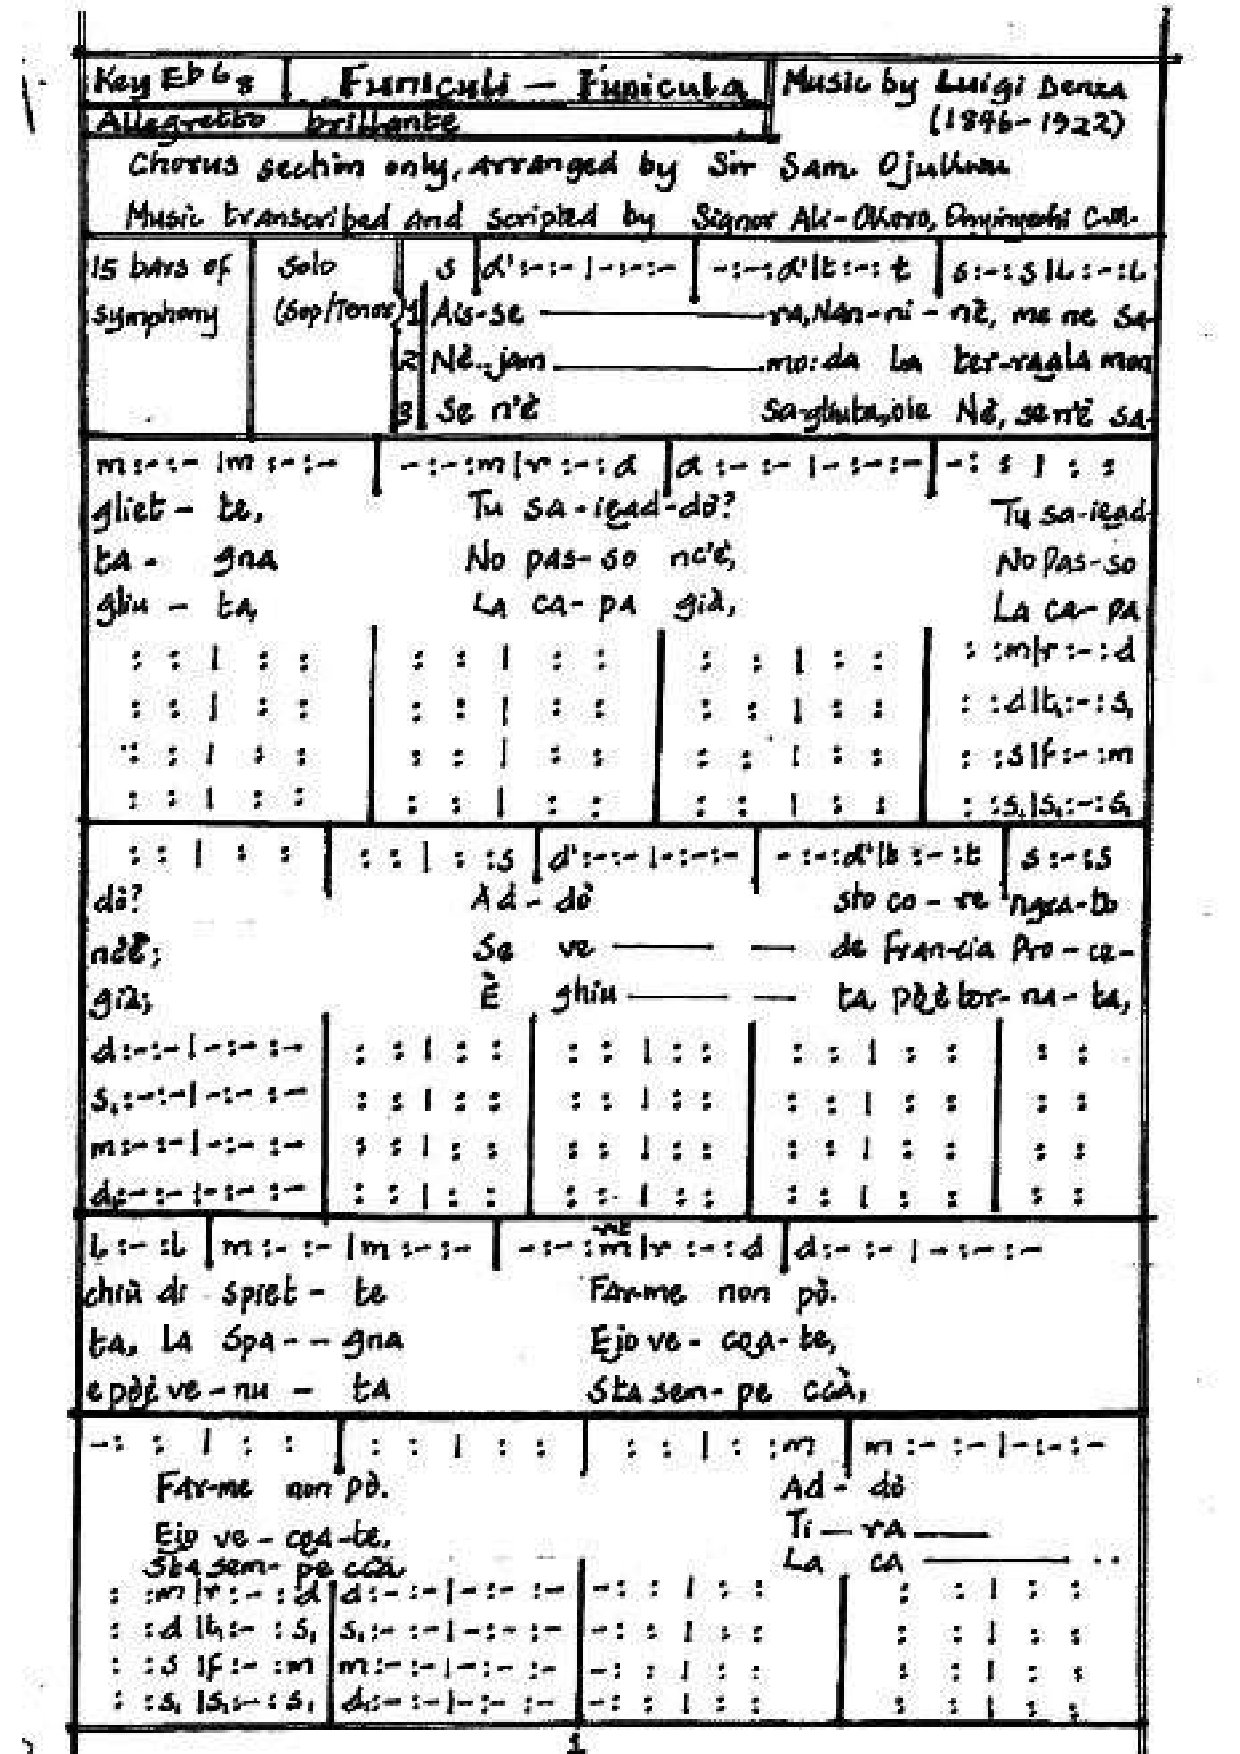 Key Eb 6 8 | Funiculi – Funicula | Music by Luigi Denza
Allegretto brillante (1846-1922)
Chorus section only, arranged by Sir Sam. Ojukwu
Music transcribed and scripted by Signor Ali-Okoro, Onyinyechi C.M.
15 bars of symphony | Solo (Sop/Tenor) | s | d':-:- | -:-:- | -:-:d' | t:-:t | s:-:s | l:-:l
1 Ais-se ra, Nan-ni-nè, me ne sa-
2 Nè..jam mo:da la ter-raala mon
3 Se n'è Sa-gliuta, oie Nè, sen'è sa-
m:-:- | m:-:- | -:-:m | r:-:d | d:-:- | -:-:- | -: : | : :
gliet-te, Tu sa-iead-dò? Tu sa-iead-
ta-gna No pas-so nc'è, No Pas-so
gliu-ta, La ca-pa già, La ca-pa
: : | : : | : : | : : | : : | : : | : :m | r:-:d
: : | : : | : : | : : | : : | : : | : :d | t₁:-:s₁
: : | : : | : : | : : | : : | : : | : :s | f:-:m
: : | : : | : : | : : | : : | : : | : :s₁ | s₁:-:s₁
: : | : : | : : | : :s | d':-:- | -:-:- | -:-:d' | t:-:t | s:-:s
dò? Ad-dò sto co-re 'ngra-to
ncè; Se ve de Fran-cia Pro-ce-
già; È ghiu ta, pòè tor-na-ta,
d:-:- | -:-:- | : : | : : | : : | : : | : : | : : | : :
s₁:-:- | -:-:- | : : | : : | : : | : : | : : | : : | : :
m:-:- | -:-:- | : : | : : | : : | : : | : : | : : | : :
d₁:-:- | -:-:- | : : | : : | : : | : : | : : | : : | : :
l:-:l | m:-:- | m:-:- | -:-:m | r:-:d | d:-:- | -:-:-
chiù di spiet-te Far-me non pò.
ta, la Spa--gna Ejo ve-coa-te,
e pòè ve-nu-ta Sta sem-pe ccà,
-: : | : : | : : | : : | : : | : :m | m:-:- | -:-:-
Far-me non pò. Ad-dò
Ejo ve-coa-te. Ti-ra
Sta sem-pe ccà, La ca
: :m | r:-:d | d:-:- | -:-:- | -: : | : : | : : | : :
: :d | t₁:-:s₁ | s₁:-:- | -:-:- | -: : | : : | : : | : :
: :s | f:-:m | m:-:- | -:-:- | -: : | : : | : : | : :
: :s₁ | s₁:-:s₁ | d₁:-:- | -:-:- | -: : | : : | : : | : :
1